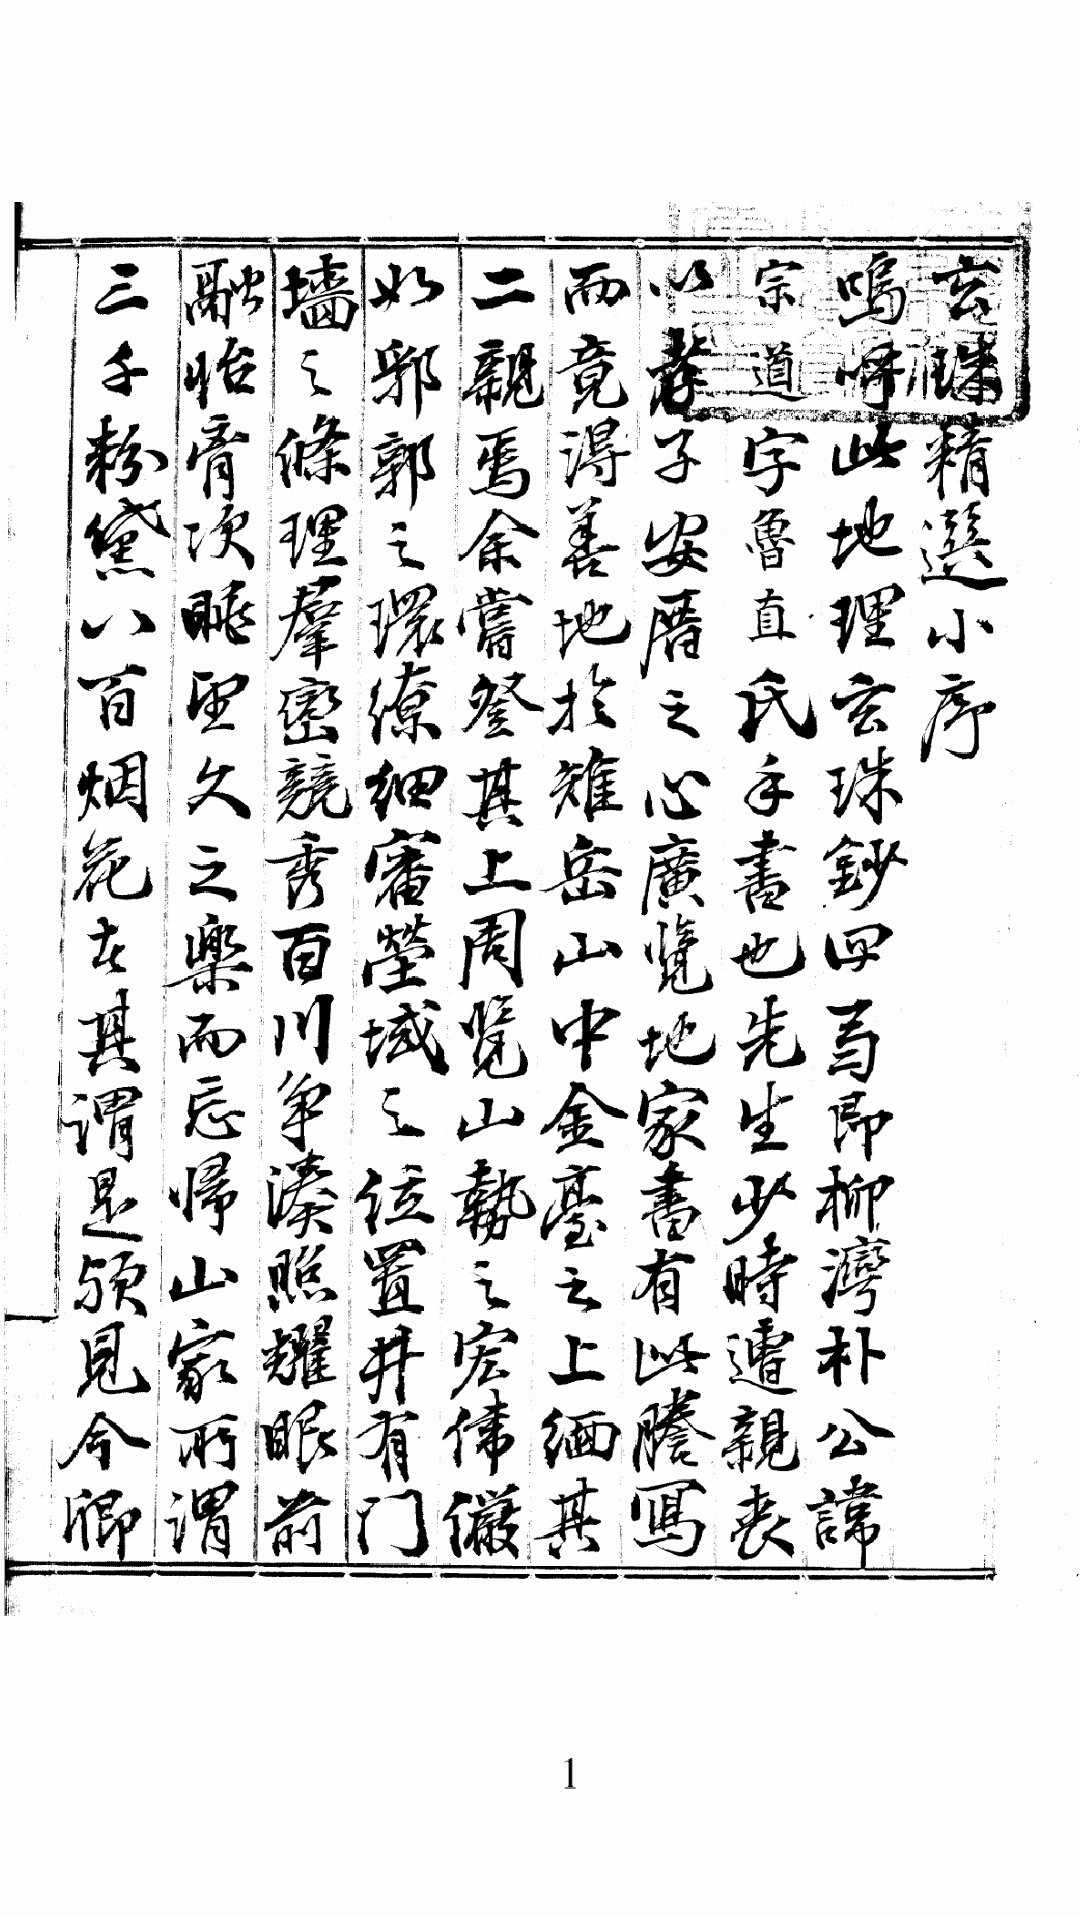 玄珠精選小序
嗚呼此地理玄珠鈔四寫即柳灣朴公諱
宗道字魯直氏手書也先生少時遭親喪
以孝子安厝之心廣覽地家書有此謄寫
而竟得善地於雉岳山中金臺之上緬其
二親焉余嘗登其上周覽山勢之宏偉儼
如郛郭之環繚細審塋域之位置井有門
墻之條理羣巒競秀百川爭湊照耀眼前
融怡膏次眺望久之樂而忘歸山家所謂
三千粉黛八百烟花在其謂是頎見今卿
1